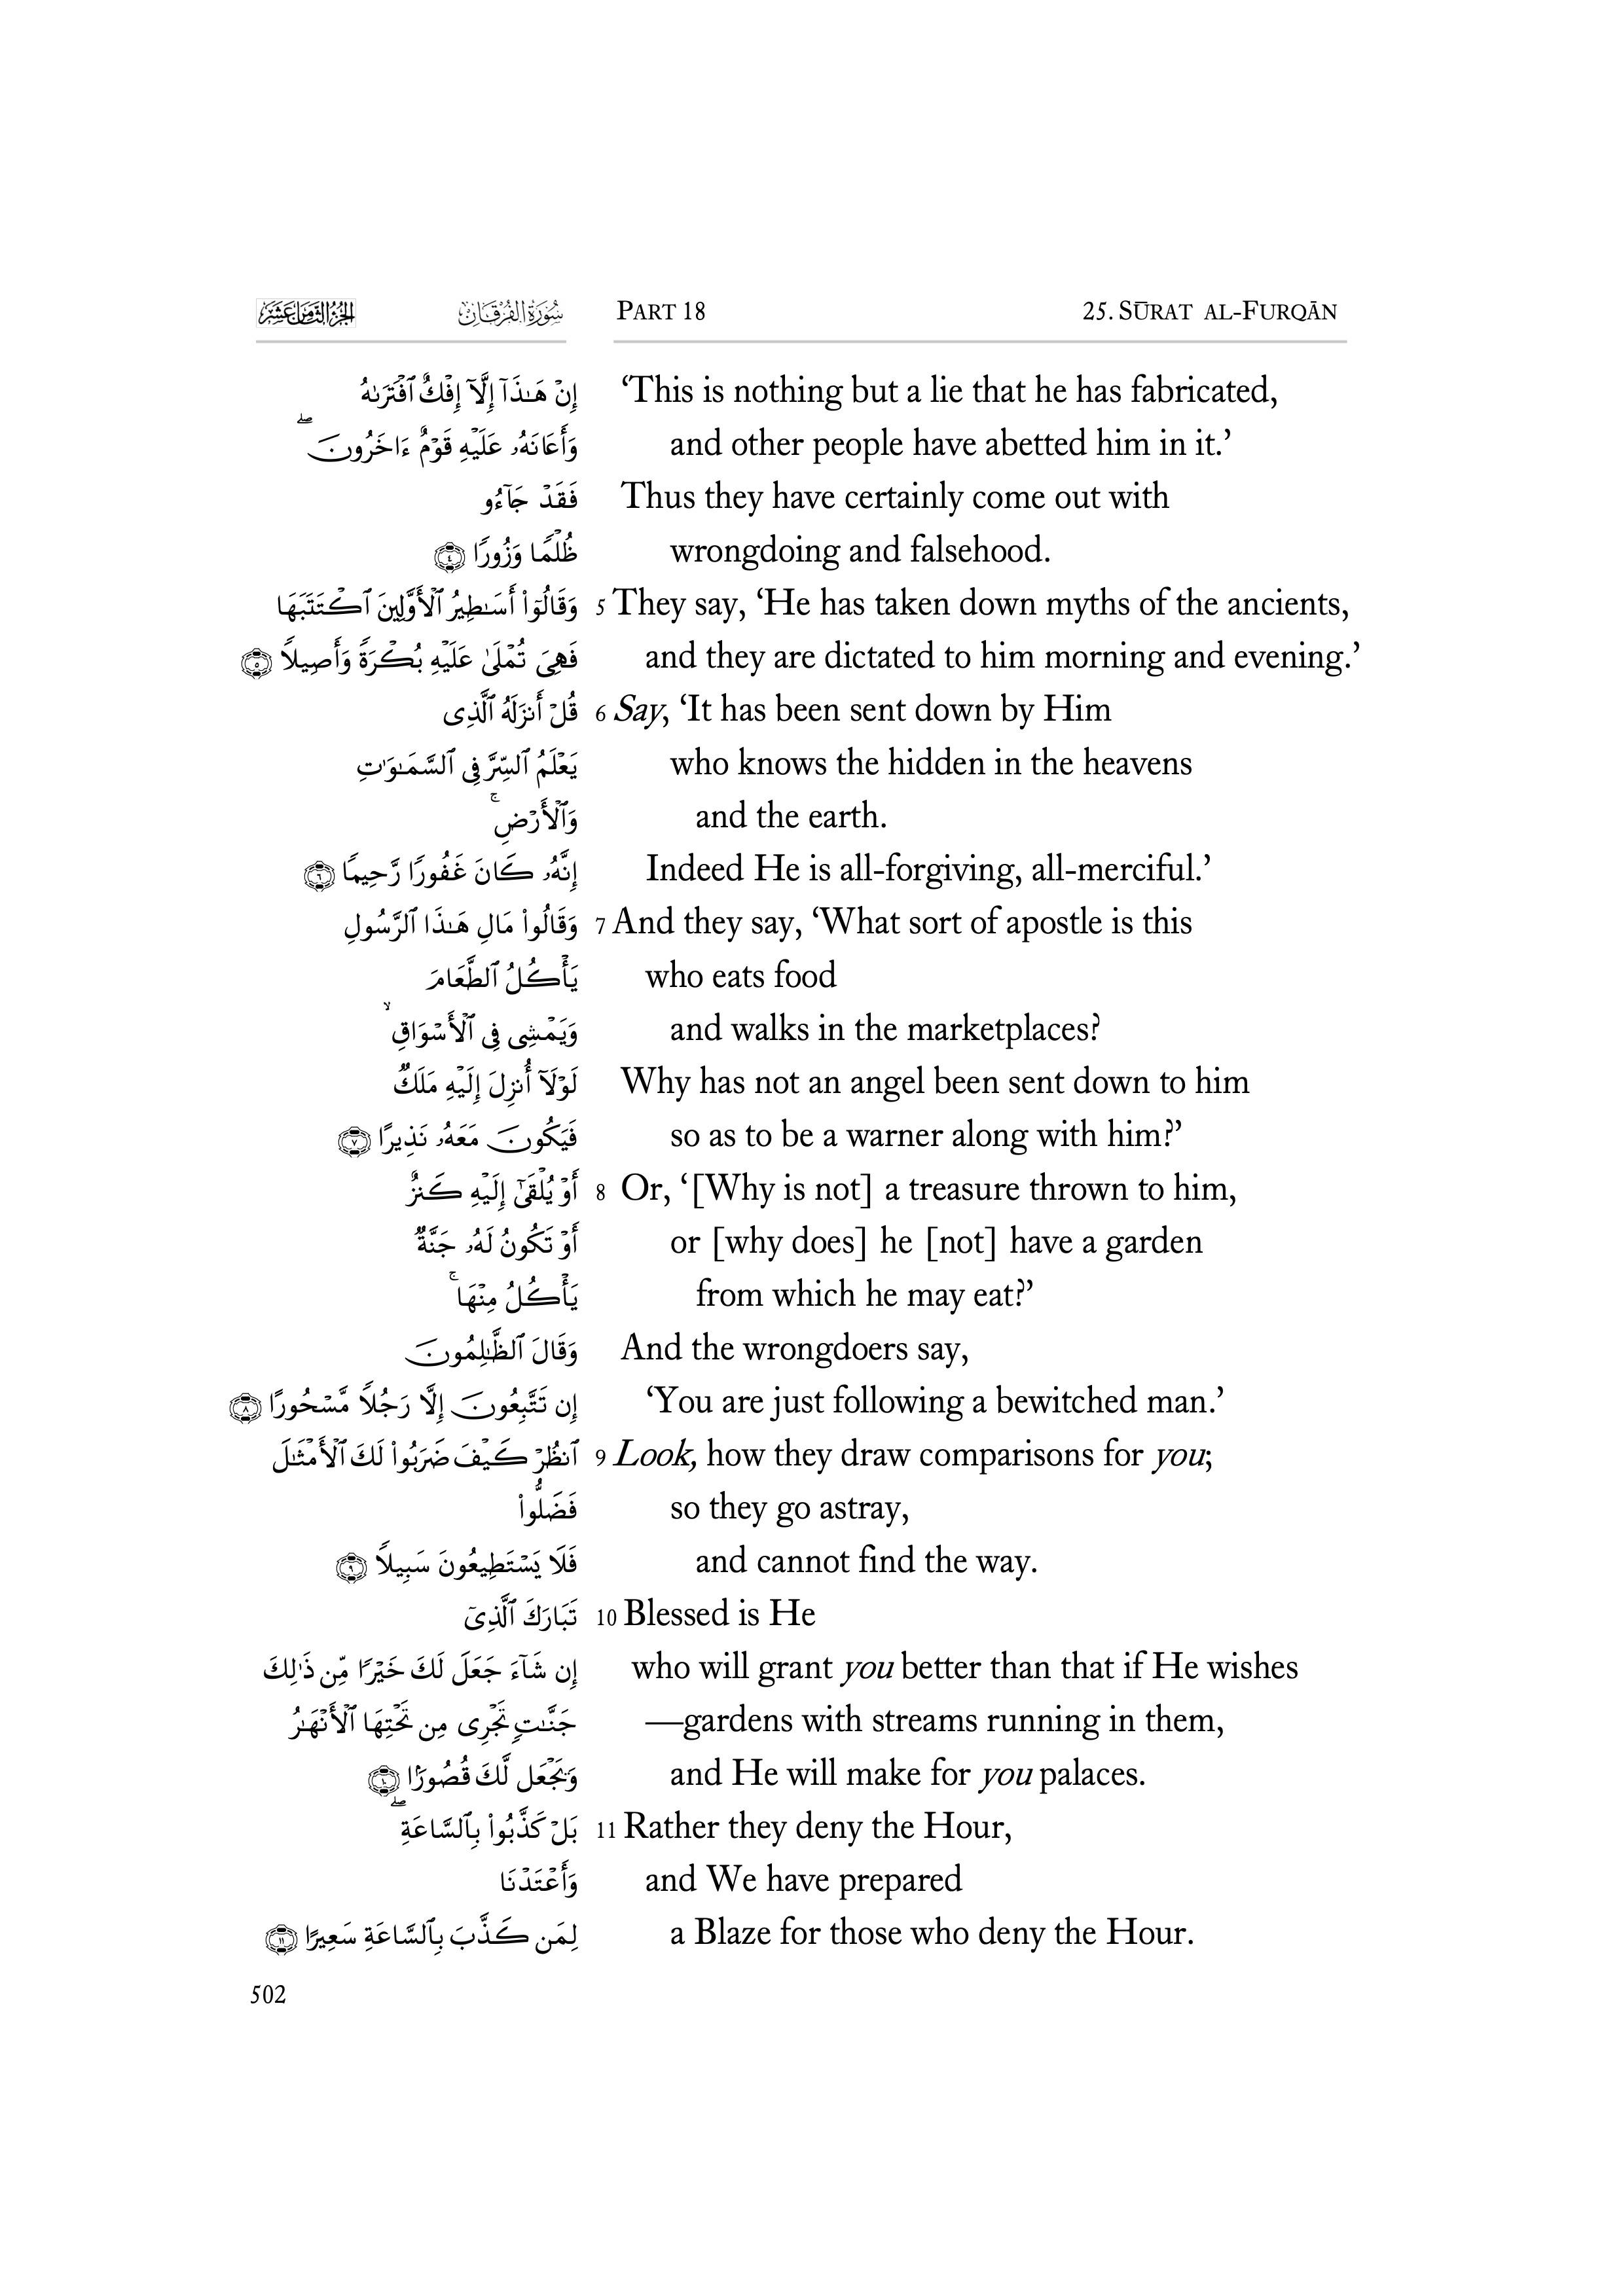 الجزء الثامن عشر سورة الفرقان PART 18 25. SŪRAT AL-FURQĀN
إِنْ هَـٰذَآ إِلَّآ إِفْكٌ ٱفْتَرَىٰهُ ‘This is nothing but a lie that he has fabricated,
وَأَعَانَهُۥ عَلَيْهِ قَوْمٌ ءَاخَرُونَ ۖ and other people have abetted him in it.’
فَقَدْ جَآءُو Thus they have certainly come out with
ظُلْمًا وَزُورًا ﴿٤﴾ wrongdoing and falsehood.
وَقَالُوٓا۟ أَسَـٰطِيرُ ٱلْأَوَّلِينَ ٱكْتَتَبَهَا 5 They say, ‘He has taken down myths of the ancients,
فَهِىَ تُمْلَىٰ عَلَيْهِ بُكْرَةً وَأَصِيلًا ﴿٥﴾ and they are dictated to him morning and evening.’
قُلْ أَنزَلَهُ ٱلَّذِى 6 Say, ‘It has been sent down by Him
يَعْلَمُ ٱلسِّرَّ فِى ٱلسَّمَـٰوَٰتِ who knows the hidden in the heavens
وَٱلْأَرْضِ ۚ and the earth.
إِنَّهُۥ كَانَ غَفُورًا رَّحِيمًا ﴿٦﴾ Indeed He is all-forgiving, all-merciful.’
وَقَالُوا۟ مَالِ هَـٰذَا ٱلرَّسُولِ 7 And they say, ‘What sort of apostle is this
يَأْكُلُ ٱلطَّعَامَ who eats food
وَيَمْشِى فِى ٱلْأَسْوَاقِ ۙ and walks in the marketplaces?
لَوْلَآ أُنزِلَ إِلَيْهِ مَلَكٌ Why has not an angel been sent down to him
فَيَكُونَ مَعَهُۥ نَذِيرًا ﴿٧﴾ so as to be a warner along with him?’
أَوْ يُلْقَىٰٓ إِلَيْهِ كَنزٌ 8 Or, ‘[Why is not] a treasure thrown to him,
أَوْ تَكُونُ لَهُۥ جَنَّةٌ or [why does] he [not] have a garden
يَأْكُلُ مِنْهَا ۚ from which he may eat?’
وَقَالَ ٱلظَّـٰلِمُونَ And the wrongdoers say,
إِن تَتَّبِعُونَ إِلَّا رَجُلًا مَّسْحُورًا ﴿٨﴾ ‘You are just following a bewitched man.’
ٱنظُرْ كَيْفَ ضَرَبُوا۟ لَكَ ٱلْأَمْثَـٰلَ 9 Look, how they draw comparisons for you;
فَضَلُّوا۟ so they go astray,
فَلَا يَسْتَطِيعُونَ سَبِيلًا ﴿٩﴾ and cannot find the way.
تَبَارَكَ ٱلَّذِىٓ 10 Blessed is He
إِن شَآءَ جَعَلَ لَكَ خَيْرًا مِّن ذَٰلِكَ who will grant you better than that if He wishes
جَنَّـٰتٍ تَجْرِى مِن تَحْتِهَا ٱلْأَنْهَـٰرُ —gardens with streams running in them,
وَيَجْعَل لَّكَ قُصُورًۢا ﴿١٠﴾ and He will make for you palaces.
بَلْ كَذَّبُوا۟ بِٱلسَّاعَةِ ۖ 11 Rather they deny the Hour,
وَأَعْتَدْنَا and We have prepared
لِمَن كَذَّبَ بِٱلسَّاعَةِ سَعِيرًا ﴿١١﴾ a Blaze for those who deny the Hour.
502